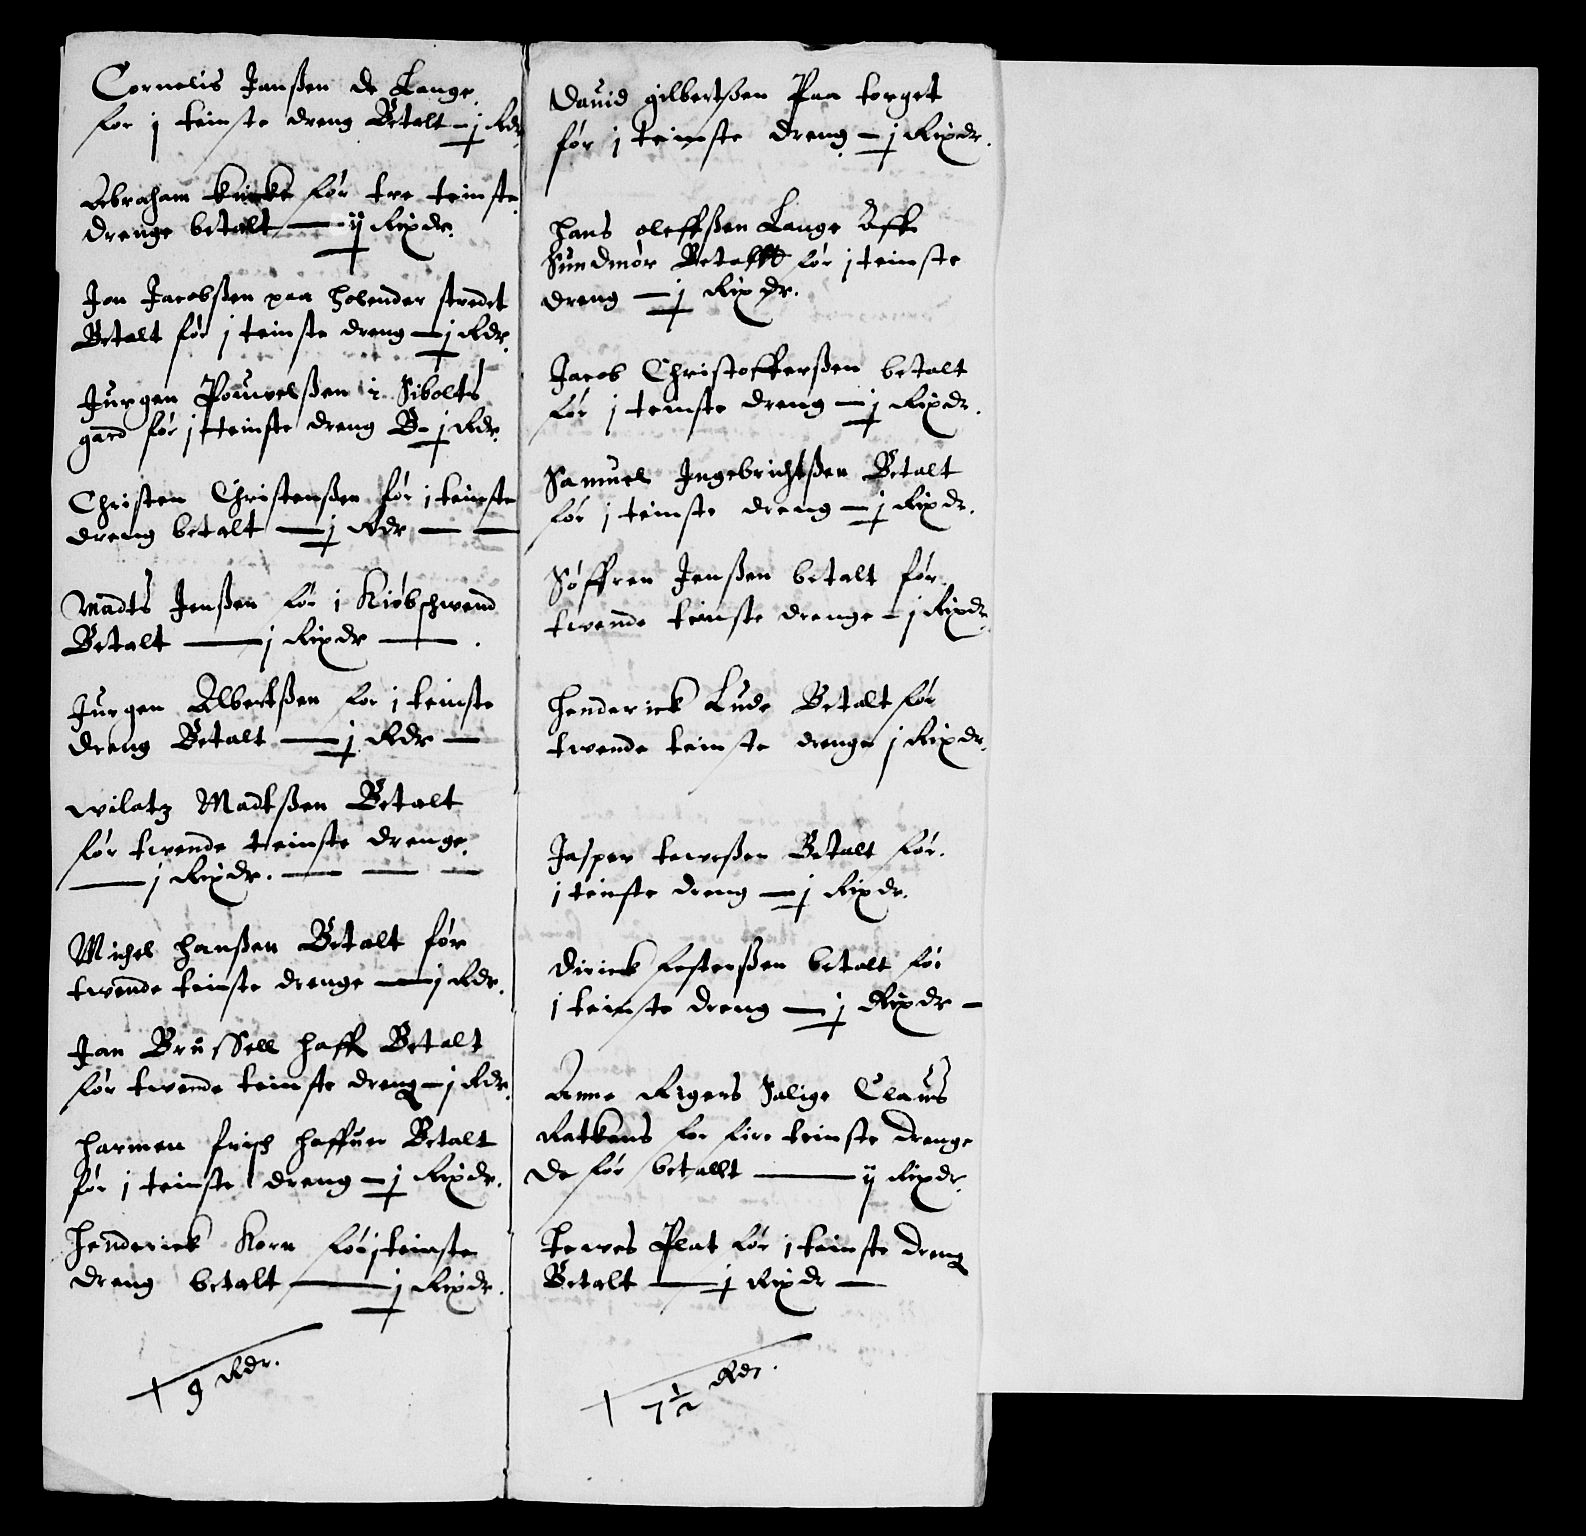 Cornelis Janßen de Lange
for j teinste dreng Betalt – j Rdr
Abraham for tre teinste
drenge betalt — ij Rixdr.
Jan Jacobßen paa holender stredet
Betalt før j teinste dreng – j Rdr.
Jurgen Pouwelßen i Sibolts
gard før j teinste dreng B– j Rdr.
Christen Christenßen før j teinste
dreng betalt — j Rdr — —
Madts Jenßen før j Kiöbschwend
Betalt — j Rixdr — .
Jurgen Albertßen for j teinste
dreng Betalt — j Rdr —
wilatz Madtßen Betalt
før twende teinste drenge
— j Rixdr. — — —
Michel Hanßen Betalt før
twende teinste drenge — j Rdr.
Jan Brussell haffr Betalt
før twende teinste dreng – j Rdr.
Harmen frisch haffuer Betalt
før j teinste dreng – j Rixdr.
Henderick Korn før j teinste
dreng betalt — j Rixdr.
9 Rdr.
Dauid gilbertßen Paa torget
før j teinste dreng – j Rixdr.
Hans oleffßen Lange Aff
Sundmør Betallt før j teinste
dreng – j Rixdr.
Jacob Christofferßen betalt
før j teinste dreng – j Rixdr.
Samuel Ingebrichtßen Betalt
før j teinste dreng – j Rixdr.
Søffren Jenßen betalt før
twende teinste drenge – j Rixdr
Henderick Lude Betalt før
twende teinste drenge j Rixdr.
Jasper teweßen Betalt før.
j teinste dreng – j Rixdr.
Dirick festerßen betalt før
j teinste dreng – j Rixdr –
Anne Rigers Salige Claus
Ratkens for fire teinste drenge
de før betallt — ij Rixdr.
tewes Plat før j teinste dreng
Betalt — j Rixdr —
7½ Rdr.